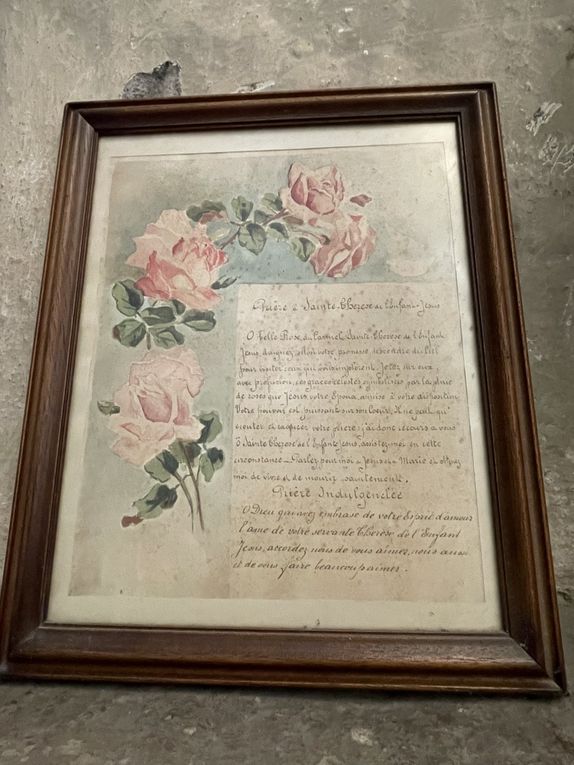 Prière à Sainte Thérèse de l'Enfant-Jésus
O belle Rose du Carmel, Sainte Thérèse de l'Enfant
Jésus, daignez selon votre promesse, descendre du Ciel
pour visiter ceux qui vous implorent. Jetez sur eux
avec profusion, ces grâces célestes symbolisées par la pluie
de roses que Jésus votre Epoux, a mise à votre disposition
Votre pouvoir est puissant sur son Coeur, Il ne peut qu'
écouter et exaucer votre prière; j'ai donc recours à vous
O Sainte Thérèse de l'Enfant Jésus, assistez-moi en cette
circonstance. Parlez pour moi à Jésus et à Marie et
moi de vivre et de mourir saintement.
Prière Indulgenciée
O Dieu qui avez embrasé de votre Esprit d'amour
l'âme de votre servante Thérèse de l'Enfant
Jésus, accordez nous de vous aimer, nous aussi
et de vous faire beaucoup aimer.